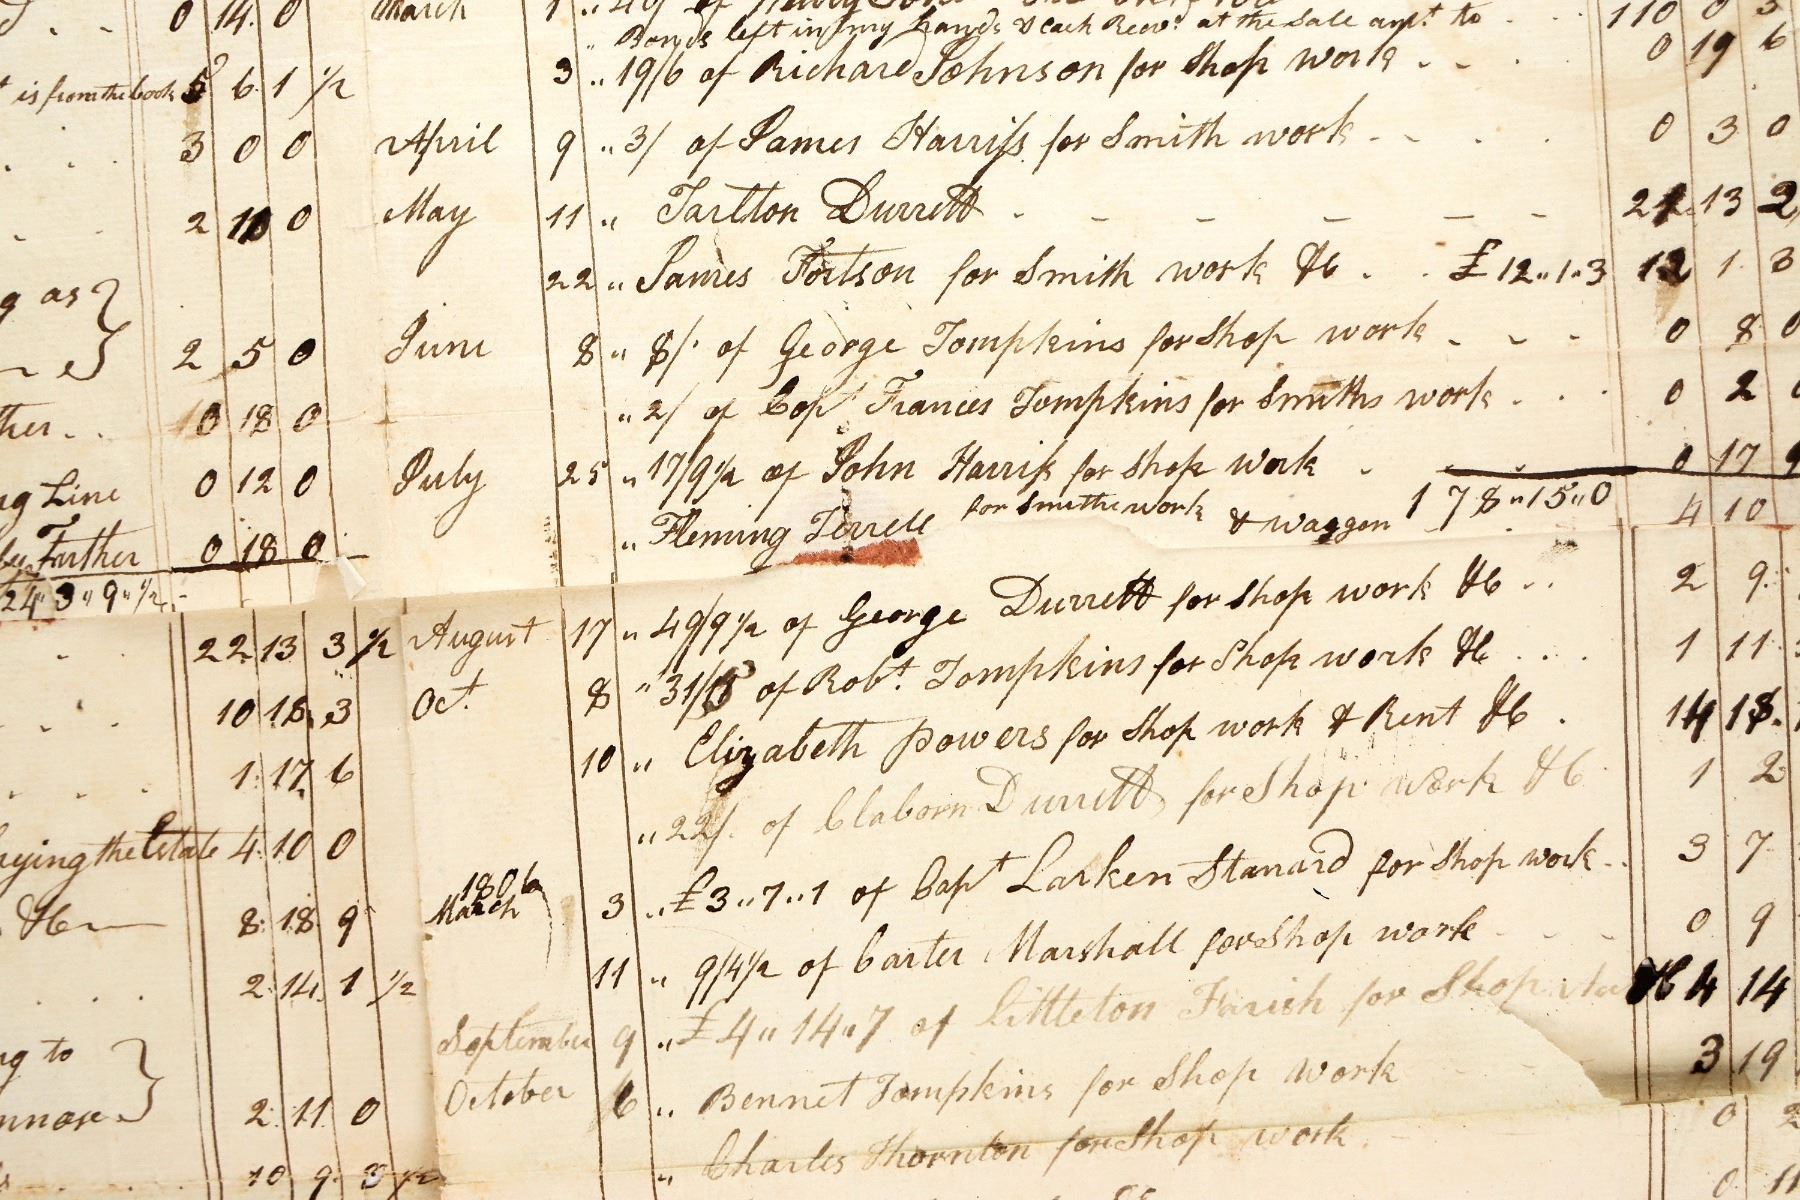 0 14. 0 March 1 ,, 
Bonds left in my hands & Cash Recvd. at the Sale amt. to . . . 110 0 3
is from the book 5 6. 1 1/2 3 ,, 19/6 of Richard Johnson for Shop work . . . 0 19 6
3 0 0 April 9 ,, 3/ of James Harriss for Smith work . . . 0 3 0
2 10 0 May 11 ,, Tarlton Durrett . - - - - - 21. 13 2
g as 22 ,, James Fortson for Smith work &c . . £ 12,,1,,3 12 1. 3
2 5 0 June 8 ,, 8/. of George Tompkins for Shop work . . . 0 8 0
ther . . 0 18 0 ,, 2/ of Capt Frances Tompkins for Smiths work . . . 0 2 0
ng Line 0 12 0 July 25 ,, 17/9 1/2 of John Harriss for Shop work . 0 17 9
by Farther 0 18 0 ,, Fleming Terrell for Smiths work & waggon 178,,15,,0 4 10
24,, 3,, 9,, 1/2
22 13 3 1/2 August 17 ,, 49/9 1/2 of George Durrett for Shop work &c . . 2 9.
10 18. 3 Oct. 8 ,, 31/ of Robt. Tompkins for Shop work &c . . . . 1 11
1. 17. 6 10 ,, Elizabeth Powers for Shop work & Rent &c . 14 18.
,, 22/. of Claborn Durrett for Shop work &c 1 2
crying the Estate 4. 10 0
1806
March 3 ,, £3,,7,,1 of Capt Larken Stanard for Shop work . . 3 7
&c 8. 18 9 11 ,, 9/4 1/2 of Carter Marshall for Shop work 0 9
2. 14. 1 1/2 September 9 ,, £4,,14,,7 of Littleton Farish for Shop &c 4 14
ng to October 6 ,, Bennet Tompkins for Shop work 3 19
2. 11. 0 ,, Charles Thornton for Shop work 0 2
10 9. 3 1/2 0 11